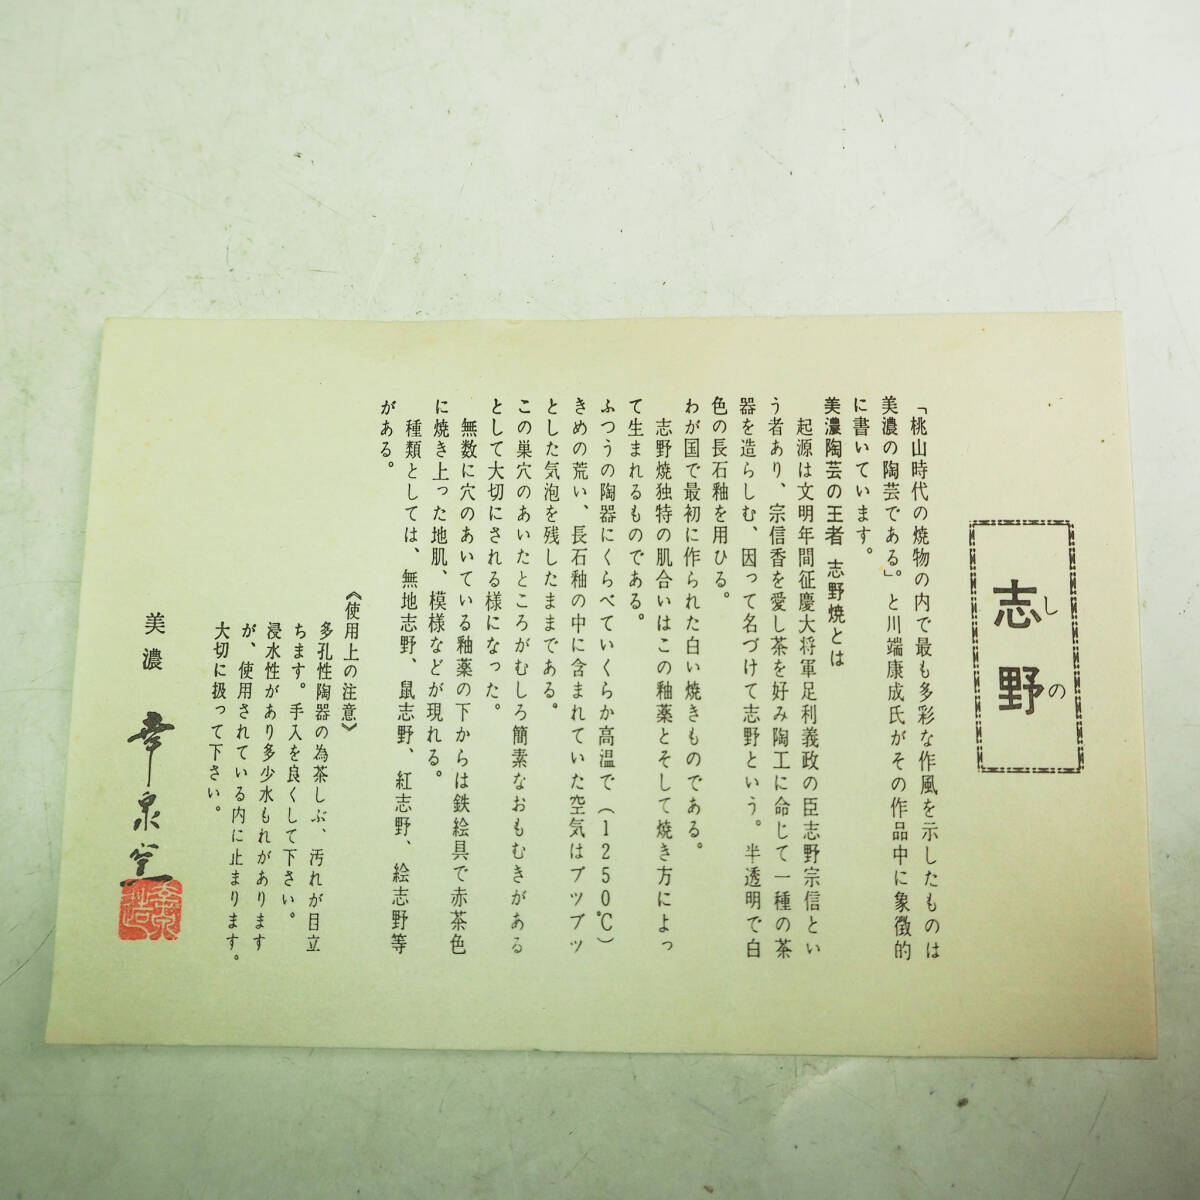 志野
しの
「桃山時代の焼物の内で最も多彩な作風を示したものは
美濃の陶芸である。」と川端康成氏がその作品中に象徴的
に書いています。
美濃陶芸の王者 志野焼とは
起源は文明年間征慶大将軍足利義政の臣志野宗信とい
う者あり、宗信香を愛し茶を好み陶工に命じて一種の茶
器を造らしむ、因って名づけて志野という。半透明で白
色の長石釉を用ひる。
わが国で最初に作られた白い焼きものである。
志野焼独特の肌合いはこの釉薬とそして焼き方によっ
て生まれるものである。
ふつうの陶器にくらべていくらか高温で(1250℃)
きめの荒い、長石釉の中に含まれていた空気はブツブツ
とした気泡を残したままである。
この巣穴のあいたところがむしろ簡素なおもむきがある
として大切にされる様になった。
無数に穴のあいている釉薬の下からは鉄絵具で赤茶色
に焼き上った地肌、模様などが現れる。
種類としては、無地志野、鼠志野、紅志野、絵志野等
がある。
《使用上の注意》
多孔性陶器の為茶しぶ、汚れが目立
ちます。手入を良くして下さい。
浸水性があり多少水もれがあります
が、使用されている内に止まります。
大切に扱って下さい。
美濃 幸泉窯